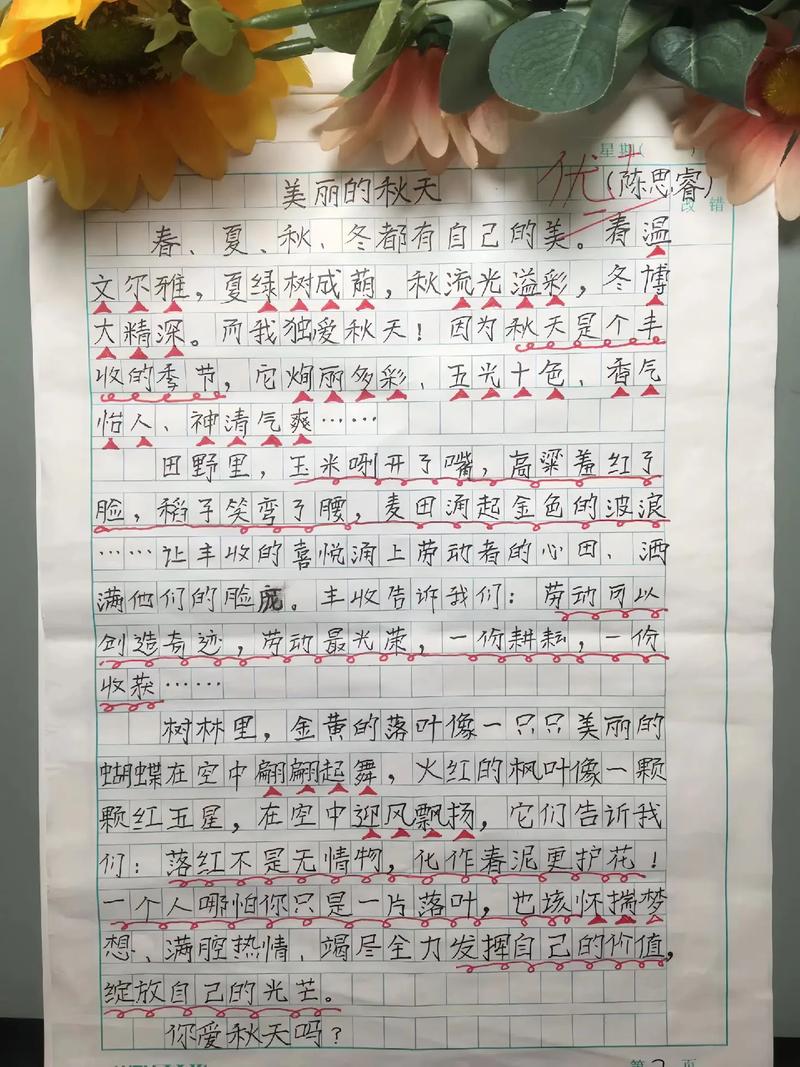 星期( )
优+
美丽的秋天 (陈思睿)
改错
春、夏、秋、冬都有自己的美。春温
文尔雅，夏绿树成荫，秋流光溢彩，冬博
大精深。而我独爱秋天！因为秋天是个丰
收的季节，它炯丽多彩、五光十色、香气
怡人、神清气爽……
田野里，玉米咧开了嘴，高粱羞红了
脸，稻子笑弯了腰，麦田涌起金色的波浪
……让丰收的喜悦涌上劳动者的心田、洒
满他们的脸庞。丰收告诉我们：劳动可以
创造奇迹，劳动最光荣，一份耕耘，一份
收获……
树林里，金黄的落叶像一只只美丽的
蝴蝶在空中翩翩起舞，火红的枫叶像一颗
颗红五星，在空中迎风飘扬，它们告诉我
们：落红不是无情物，化作春泥更护花！
一个人哪怕你只是一片落叶，也该怀揣梦
想、满腔热情、竭尽全力发挥自己的价值，
绽放自己的光芒。
你爱秋天吗？
第2页